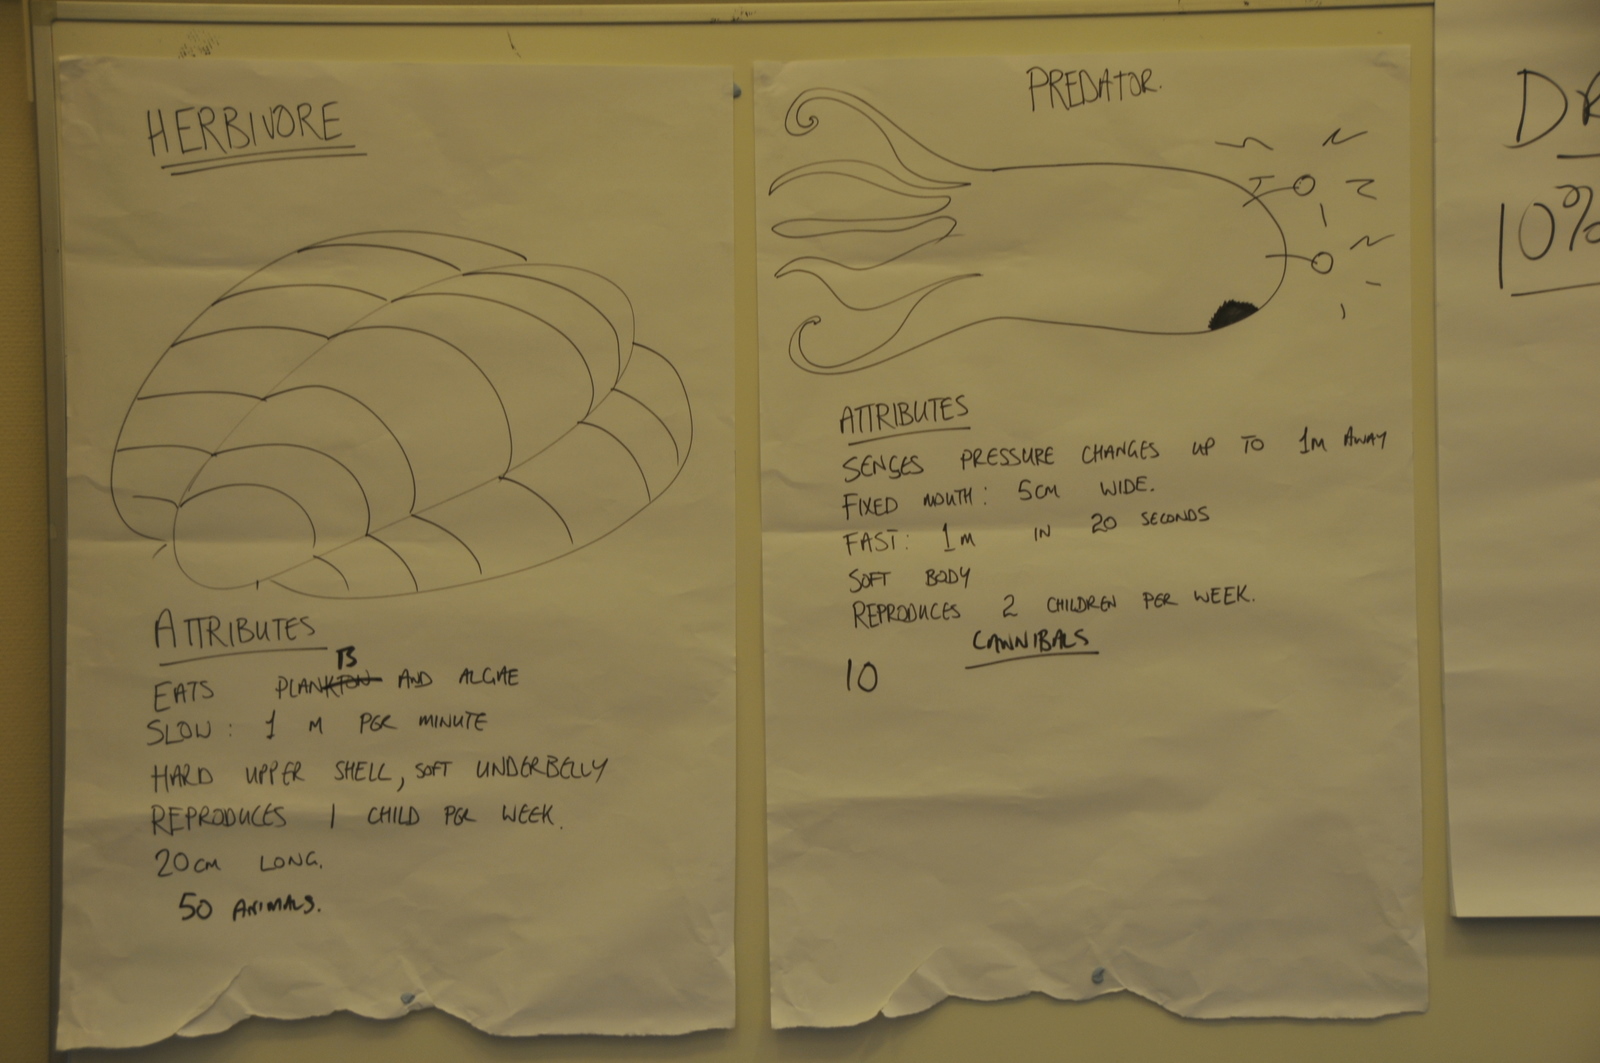 HERBIVORE
ATTRIBUTES
EATS PLANTS AND ALGAE
SLOW: 1 M PER MINUTE
HARD UPPER SHELL, SOFT UNDERBELLY
REPRODUCES 1 CHILD PER WEEK.
20CM LONG.
50 ANIMALS.
PREDATOR.
ATTRIBUTES
SENSES PRESSURE CHANGES UP TO 1M AWAY
FIXED MOUTH: 5CM WIDE.
FAST: 1M IN 20 SECONDS
SOFT BODY
REPRODUCES 2 CHILDREN PER WEEK.
CANNIBALS
10
10%